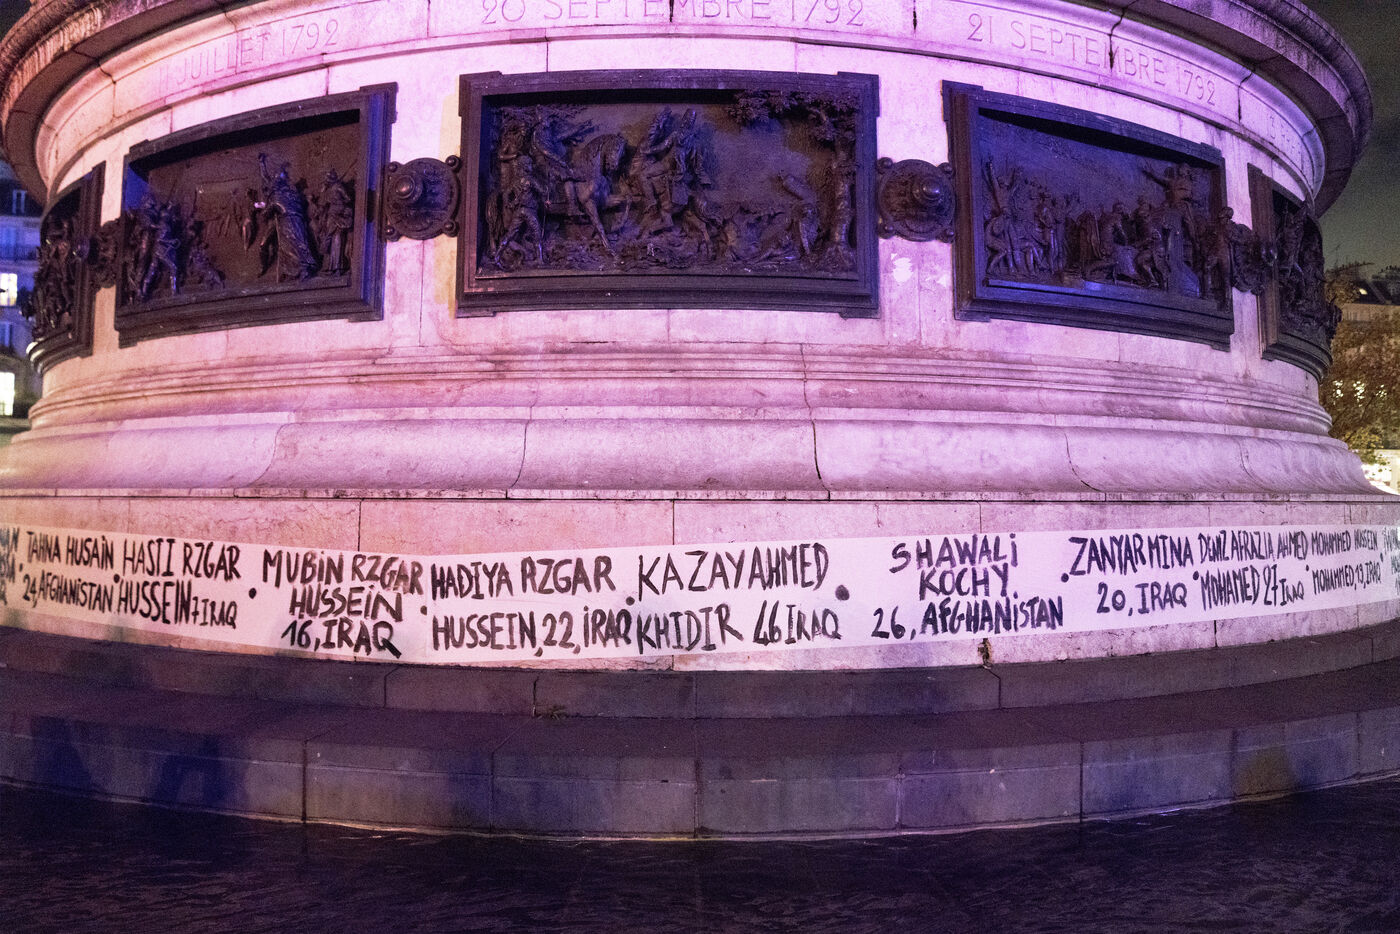 11 JUILLET 1792
20 SEPTEMBRE 1792
21 SEPTEMBRE 1792
TAHNA HUSAIN
24, AFGHANISTAN
HASTI RZGAR
HUSSEIN 7 IRAQ
MUBIN RZGAR
HUSSEIN
16, IRAQ
HADIYA RZGAR
HUSSEIN, 22, IRAQ
KAZAY AHMED
KHIDIR 46 IRAQ
SHAWALI
KOCHY
26, AFGHANISTAN
ZANYAR MINA
20, IRAQ
DENIZ AFRAZIA AHMED
MOHAMED 27 IRAQ
MOHAMMED HUSSEIN
MOHAMMED, 19, IRAQ